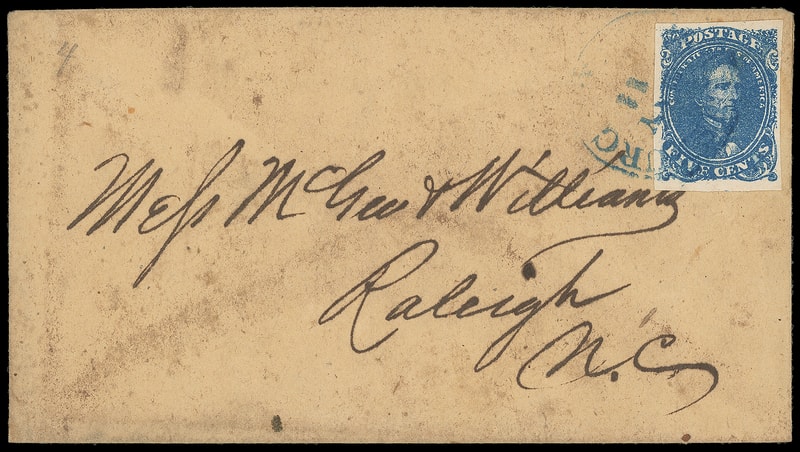 4
POSTAGE
CONFEDERATE STATES OF AMERICA
FIVE CENTS
Mess McGee & Williams
Raleigh
N.C.